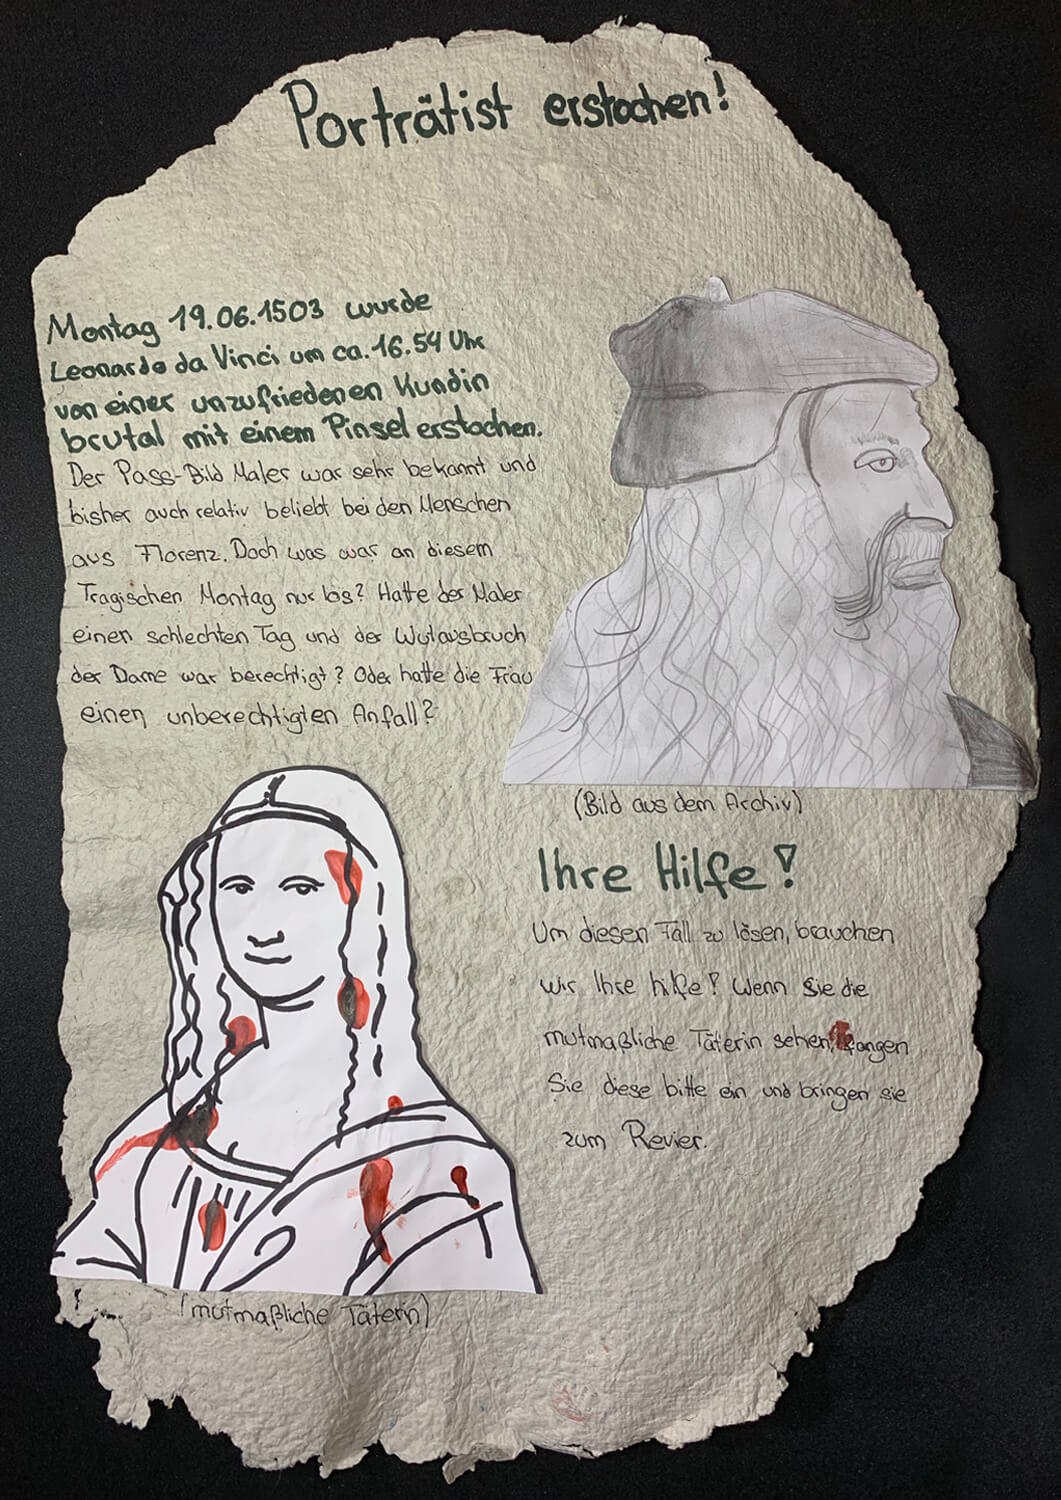 Porträtist erstochen!
Montag 19.06.1503 wurde
Leonardo da Vinci um ca. 16.54 Uhr
von einer unzufriedenen Kundin
brutal mit einem Pinsel erstochen.
Der Pass-Bild Maler war sehr bekannt und
bisher auch relativ beliebt bei den Menschen
aus Florenz. Doch was war an diesem
Tragischen Montag nur los? Hatte der Maler
einen schlechten Tag und der Wutausbruch
der Dame war berechtigt? Oder hatte die Frau
einen unberechtigten Anfall?
(Bild aus dem Archiv)
Ihre Hilfe!
Um diesen Fall zu lösen, brauchen
wir Ihre hilfe! Wenn Sie die
mutmaßliche Täterin sehen, fangen
Sie diese bitte ein und bringen sie
zum Revier.
(mutmaßliche Täterin)